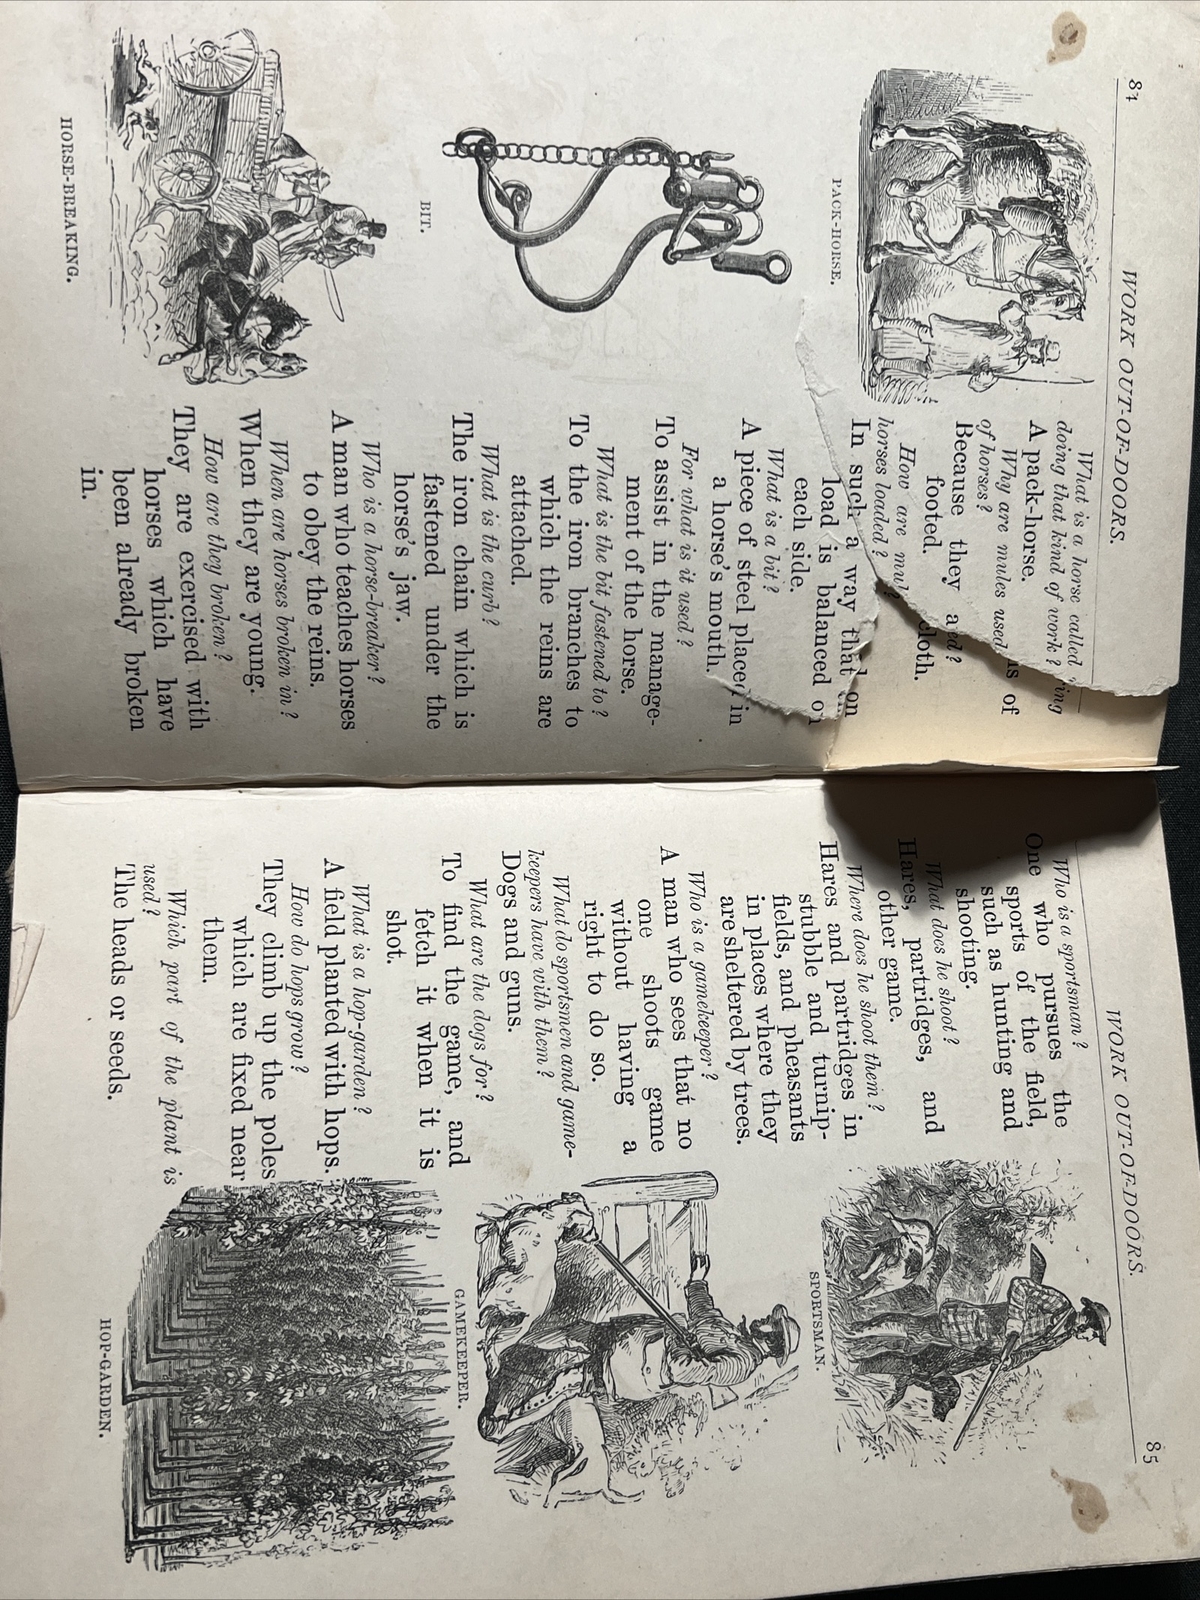 84
WORK OUT-OF-DOORS.
PACK-HORSE.
BIT.
HORSE-BREAKING.
What is a horse called
doing that kind of work?
A pack-horse.
Why are mules used
of horses?
Because they a
footed.
How are mul
horses loaded?
In such a way that
load is balanced on
each side.
What is a bit?
A piece of steel placed in
a horse's mouth.
For what is it used?
To assist in the manage-
ment of the horse.
What is the bit fastened to?
To the iron branches to
which the reins are
attached.
What is the curb?
The iron chain which is
fastened under the
horse's jaw.
Who is a horse-breaker?
A man who teaches horses
to obey the reins.
When are horses broken in?
When they are young.
How are they broken?
They are exercised with
horses which have
been already broken
in.
ing
of
ed?
cloth.
on
WORK OUT-OF-DOORS.
85
Who is a sportsman?
One who pursues the
sports of the field,
such as hunting and
shooting.
What does he shoot?
Hares, partridges, and
other game.
Where does he shoot them?
Hares and partridges in
stubble and turnip-
fields, and pheasants
in places where they
are sheltered by trees.
Who is a gamekeeper?
A man who sees that no
one shoots game
without having a
right to do so.
What do sportsmen and game-
keepers have with them?
Dogs and guns.
What are the dogs for?
To find the game, and
fetch it when it is
shot.
What is a hop-garden?
A field planted with hops.
How do hops grow?
They climb up the poles
which are fixed near
them.
Which part of the plant is
used?
The heads or seeds.
SPORTSMAN.
GAMEKEEPER.
HOP-GARDEN.